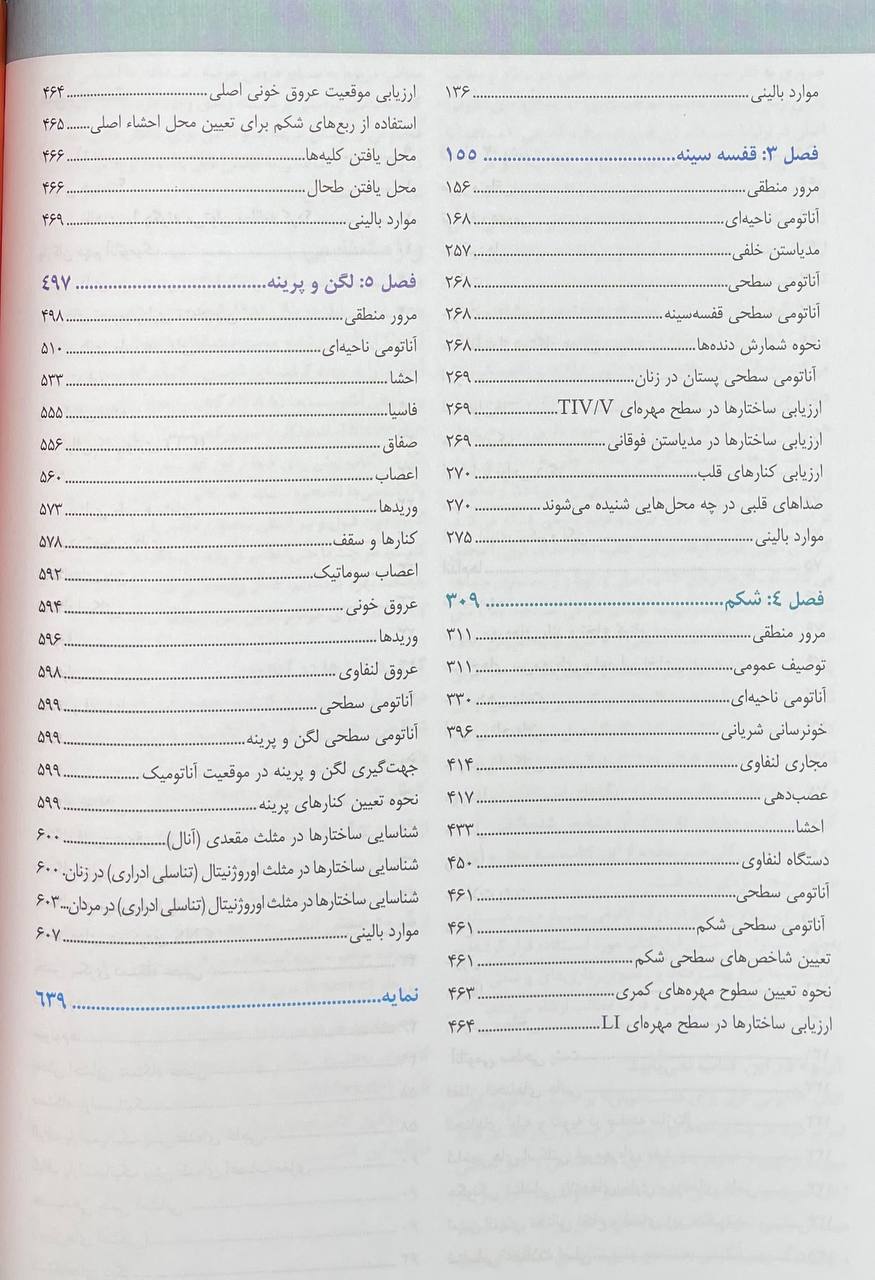 موارد بالینی ۱۳۶
فصل ۳: قفسه سینه ۱۵۵
مرور منطقی ۱۵۶
آناتومی ناحیه‌ای ۱۶۸
مدیاستن خلفی ۲۵۷
آناتومی سطحی ۲۶۸
آناتومی سطحی قفسه‌سینه ۲۶۸
نحوه شمارش دنده‌ها ۲۶۸
آناتومی سطحی پستان در زنان ۲۶۹
ارزیابی ساختارها در سطح مهره‌ای TIV/V ۲۶۹
ارزیابی ساختارها در مدیاستن فوقانی ۲۶۹
ارزیابی کنارهای قلب ۲۷۰
صداهای قلبی در چه محل‌هایی شنیده می‌شوند ۲۷۰
موارد بالینی ۲۷۵
فصل ٤: شکم ۳۰۹
مرور منطقی ۳۱۱
توصیف عمومی ۳۱۱
آناتومی ناحیه‌ای ۳۳۰
خونرسانی شریانی ۳۹۶
مجاری لنفاوی ۴۱۴
عصب‌دهی ۴۱۷
احشا ۴۳۳
دستگاه لنفاوی ۴۵۰
آناتومی سطحی ۴۶۱
آناتومی سطحی شکم ۴۶۱
تعیین شاخص‌های سطحی شکم ۴۶۱
نحوه تعیین سطوح مهره‌های کمری ۴۶۳
ارزیابی ساختارها در سطح مهره‌ای LI ۴۶۴
ارزیابی موقعیت عروق خونی اصلی ۴۶۴
استفاده از ربع‌های شکم برای تعیین محل احشاء اصلی ۴۶۵
محل یافتن کلیه‌ها ۴۶۶
محل یافتن طحال ۴۶۶
موارد بالینی ۴۶۹
فصل ۵: لگن و پرینه ٤۹۷
مرور منطقی ۴۹۸
آناتومی ناحیه‌ای ۵۱۰
احشا ۵۳۳
فاسیا ۵۵۵
صفاق ۵۵۶
اعصاب ۵۶۰
وریدها ۵۷۳
کنارها و سقف ۵۷۸
اعصاب سوماتیک ۵۹۲
عروق خونی ۵۹۴
وریدها ۵۹۶
عروق لنفاوی ۵۹۸
آناتومی سطحی ۵۹۹
آناتومی سطحی لگن و پرینه ۵۹۹
جهت‌گیری لگن و پرینه در موقعیت آناتومیک ۵۹۹
نحوه تعیین کنارهای پرینه ۵۹۹
شناسایی ساختارها در مثلث مقعدی (آنال) ۶۰۰
شناسایی ساختارها در مثلث اوروژنیتال (تناسلی ادراری) در زنان ۶۰۰
شناسایی ساختارها در مثلث اوروژنیتال (تناسلی ادراری) در مردان ۶۰۳
موارد بالینی ۶۰۷
نمایه ٦۳۹